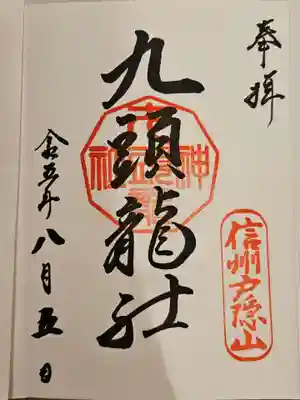 奉拜
九頭龍社
信州戸隠山
令五年八月五日